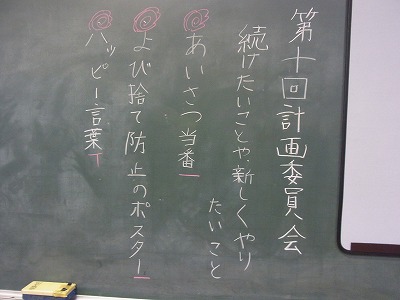 第十回計画委員会
続けたいことや新しくやり
たいこと
あいさつ当番
よび捨て防止のポスター
ハッピー言葉